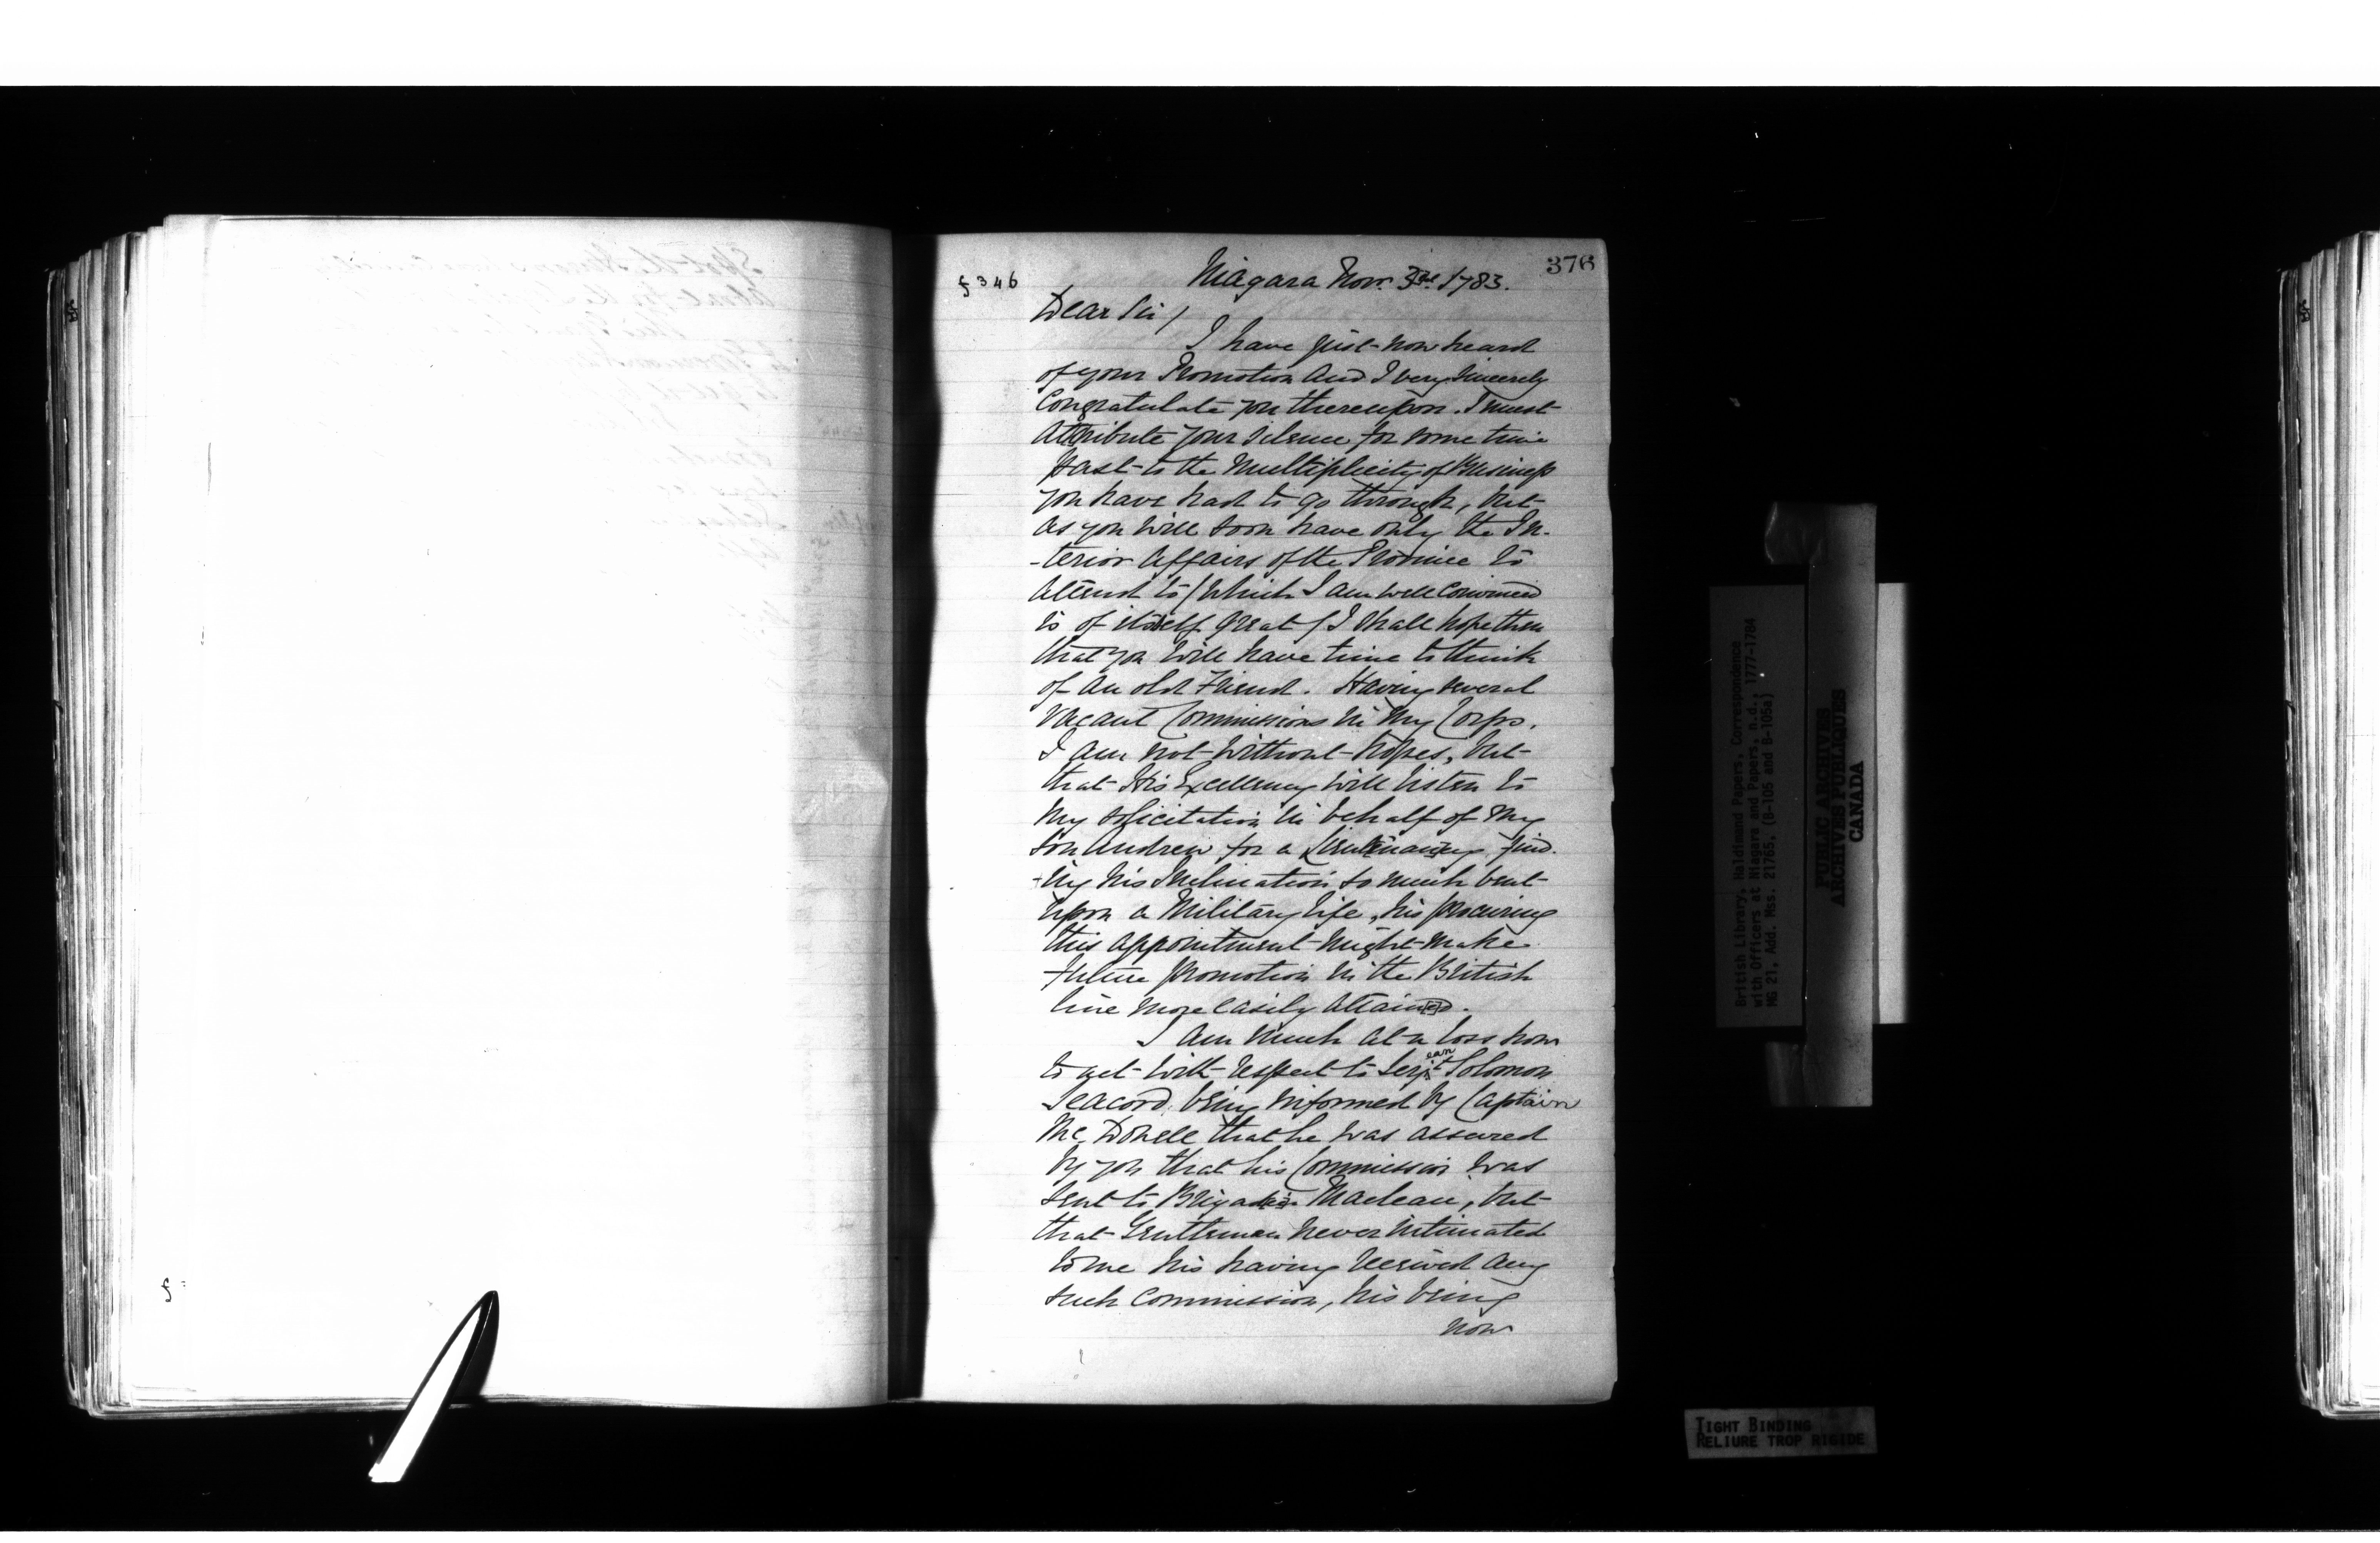 376
f 346
Niagara Novr. 3rd 1783.
Dear Sir /
I have just now heard
of your Promotion and I very sincerely
Congratulate you thereupon. I must
Attribute your silence for some time
past to the Multiplicity of Business
you have had to go through, but
as you will soon have only the In-
-terior Affairs of the Province to
attend to (which I am well convinced
is of itself great) I shall hope then
that you will have time to think
of an old Friend. Having several
Vacant Commissions in my Corps.
I am not without hopes, but
that His Excellency will listen to
my solicitation in behalf of my
son Andrew for a Lieutenancy find-
-ing his Inclination so much bent
upon a Military life, his procuring
this appointment might make
future promotion in the British
line more easily attain[e]d.
I am much at a loss how
to act with respect to Serjeant Solomon
Seacord, being informed by Captain
Mc. Donell that he was assured
by you that his Commission was
sent to Brigadier Maclean, but
that Gentleman never intimated
to me his having received any
such Commission, his being
now
British Library, Haldimand Papers, Correspondence
with Officers at Niagara and Papers, n.d., 1777-1784
MG 21, Add. Mss. 21765, (B-105 and B-105a)
PUBLIC ARCHIVES
ARCHIVES PUBLIQUES
CANADA
TIGHT BINDING
RELIURE TROP RIGIDE